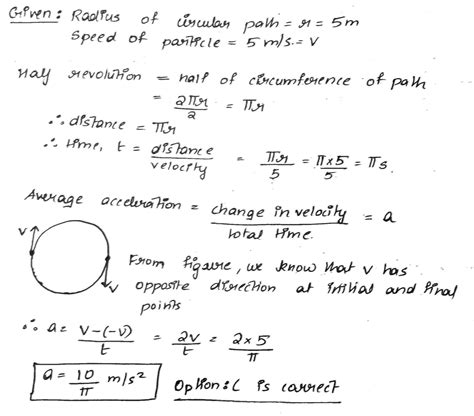 Given: Radius of circular path = r = 5m
Speed of particle = 5 m/s. = V
Half revolution = half of circumference of path
= 2πr/2 = πr
∴ distance = πr
∴ time, t = distance/velocity = πr/5 = π×5/5 = πs.
Average acceleration = change in velocity/total time. = a
V
V
From figure, we know that v has
opposite direction at initial and final
points
∴ a = V-(-V)/t = 2V/t = 2×5/π
a = 10/π m/s²
Option: C is correct